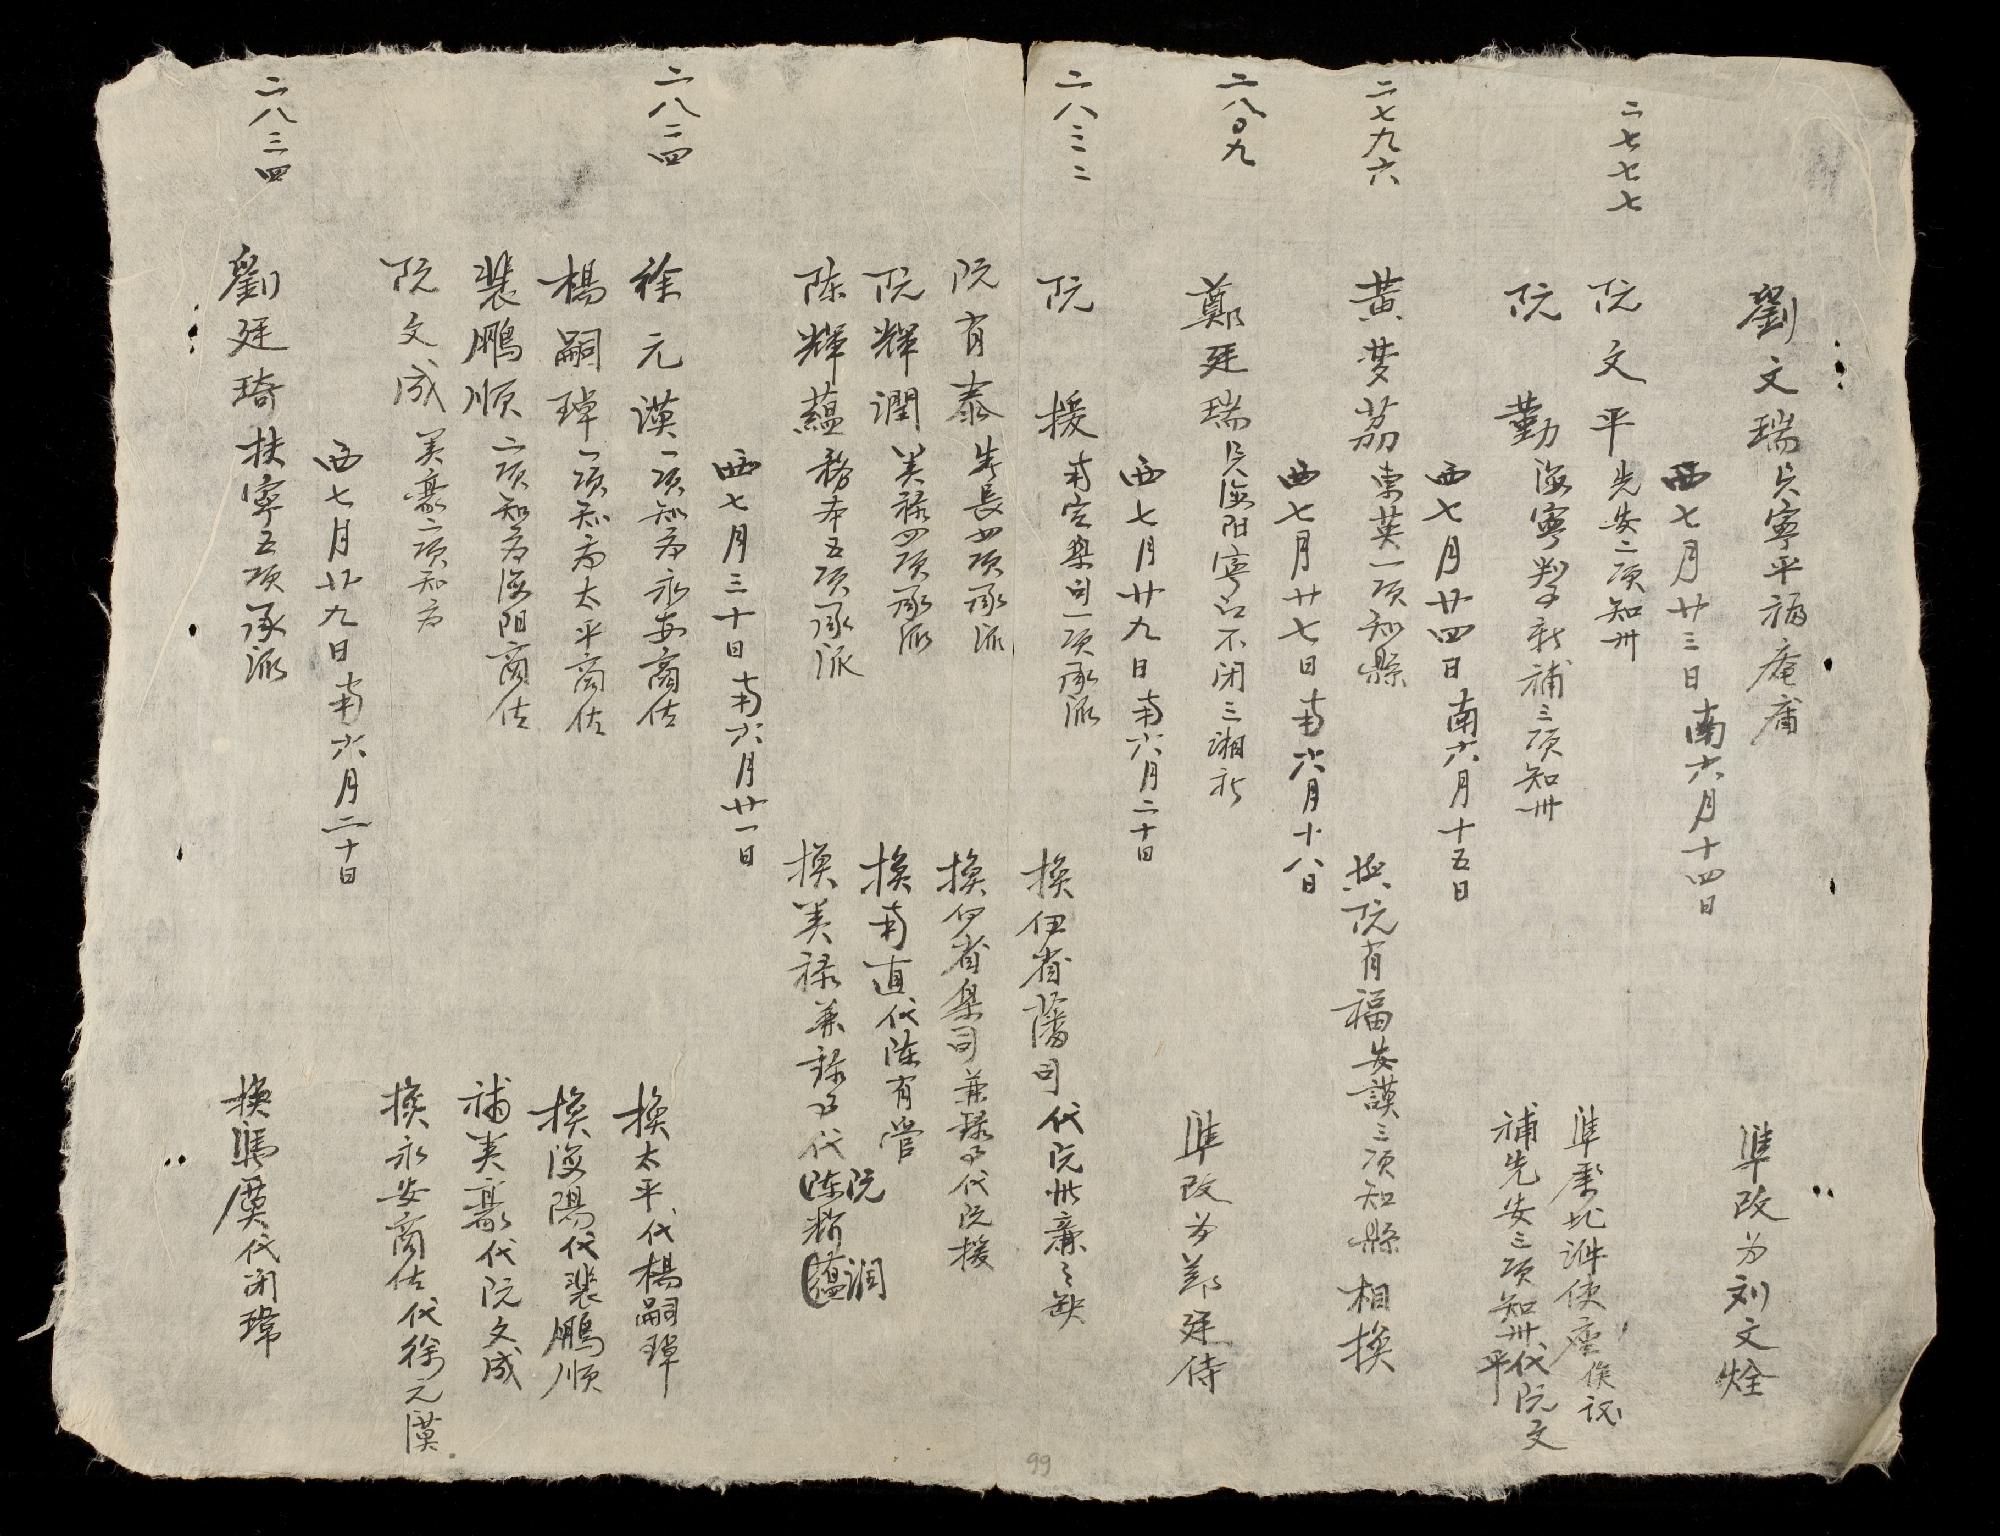 劉文瑞 寧平福庵庸 準改为刘文烇
二七七七
西七月廿三日南六月十四日
阮文平 先安二項知州 準 北 使座 俟認
阮勤 海寧 補三項知州 補先安三項知州代阮文平
西七月廿四日南六月十五日
二七九六
黃梦荔 東英一項知縣 與阮有福安謨三項知縣相換
西七月廿七日南六月十八日
二八〇九
鄭廷瑞 海阳寧江不闭三湘 準改为鄭廷侍
西七月廿九日南六月二十日
二八三二
阮援 南定臬司一項承派 換伊省藩司代阮 廉之缺
阮有泰 長四項承派 換伊省臬司兼 代阮援
阮輝潤 美祿四項承派 換南直代陈有营
陈輝蘊 務本五項承派 換美祿兼 代陈 蘊阮润
西七月三十日南六月廿一日
二八二四
徐元漠 一項知府永安商佐 換太平代楊嗣瑋
楊嗣瑋 一項知府太平商佐 換海陽代裴鵬順
裴鵬順 二項知府海阳商佐 補美豪代阮文成
阮文成 美豪二項知府 換永安商佐代徐元漠
西七月廿九日南六月二十日
二八三四
劉廷琦 扶寧五項承派 換 代闭瑋
99